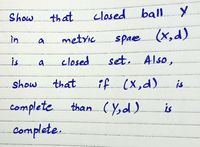 Show that closed ball Y
in a metric spae (X,d)
is a closed set. Also,
show that if (X,d) is
complete than (Y,d) is
complete.